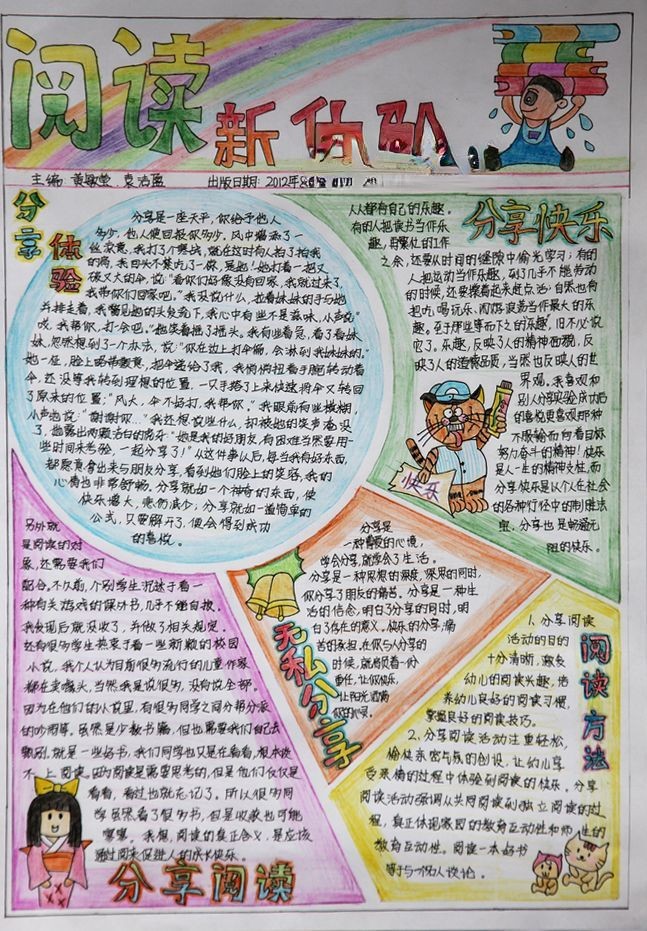 阅读
新伙队
主编: 黄敏莹 袁洁盈
出版日期: 2012年
分享体验
分享是一座天平，你给予他人
多少，他人便回报你多少。风中掺杂了一
丝凉意，我打了个寒战，就在这时有人拍了拍我
的肩，我回头不禁吃了一惊，是她！她打着一把又
破又大的伞，说："看你们好像没有回家，我就过来了，
我带你们回家吧。"我没说什么，拉着妹妹的手与她
并排走着，我瞥见她的头发充下，我心中有些不是滋味，小声说：
"哎，我帮你，打一会吧。"她笑着摇了摇头。我有些着急，看了看妹
妹，忽然想到了一个办法，说："你在边上打伞偏，会淋到我妹妹的。"
她一怔，脸上略带歉意，把伞递给了我，我悄悄扭着手腕转动着
伞，还没等我转到理想的位置，一只手搭了上来快速将伞又转回
了原来的位置："风大，伞不好打，我帮你。"我眼前有些模糊，
小声地说："谢谢你…"我还想说些什么，却被她的笑声淹没
了，她露出两颗洁白的虎牙："她是我的好朋友，有困难当然要用一
些时间来考验，一起分享了！"从这件事以后，每当我有好东西，
都愿意拿出来与朋友分享，看到她们脸上的笑容，我的
心情也非常舒畅，分享就如一个神奇的东西，使
快乐增大，悲伤减少，分享就如一道简单的
公式，只要解开了，便会得到成功
的喜悦。
分享快乐
人人都有自己的乐趣。
有的人把读书当作乐
趣，再繁忙的工作
之余，还要从时间的缝隙中偷光学习；有的
人把运动当作乐趣，到了几乎不能劳动
的时候，还要撑着起来赶点活；自然也有
把吃喝玩乐、闹奶浪荡当作最大的乐
趣。至于那些等而下之的乐趣，旧不必说
它了。乐趣，反映了人的精神面貌，反
映了人的道德品质，当然也反映人的世
界观。我喜欢和
别人分享实验成功后
的喜悦更喜欢那种
不服输而向着目标
努力奋斗的精神！快乐
是人一生的精神支柱，而
分享快乐是以个人在社会
的各种灯径中的制胜法
宝。分享也是畅通无
阻的快乐。
快乐
另外就
是阅读的对
象，还需要我们
配合。不久前，个别学生沉迷于看一
种有关游戏的课外书，几乎不能自拔。
我发现后就没收了，并做了相关规定。
还有很多学生热衷于看一些新颖的校园
小说，我个人认为目前很多流行的儿童作家
都在卖噱头，当然我是说很多，没有说全部。
因为在他们的小说里，有很多同学之间分帮分派
的吵闹等。虽然是少数书籍，但也需要我们自己去
甄别。就是一些好书，我们同学也只是在看看，根本谈
不上阅读。因为阅读是需要思考的，但是他们仅仅是
看看，看过也就忘记了。所以很多同
学虽然看了很多书，但是收获也可能
寥寥。我想，阅读的真正含义，是应该
通过阅来促进人的成长快乐。
分享阅读
无私分享
分享是
一种博爱的心境，
学会分享，就学会了生活。
分享是一种思想的深度，深思的同时，
你分享了朋友的痛苦。分享是一种生
活的信念，明白了分享的同时，明
白了存在的意义，快乐的分享，痛
苦的承担，在你与人分享的
时候，就肩负着一份
重任，让你快乐，
让阳光洒满
你的心灵。
阅读方法
1、分享阅读
活动的目的
十分清晰，激发
幼儿的阅读兴趣，培
养幼儿良好的阅读习惯，
掌握良好的阅读技巧。
2、分享阅读活动注重轻松，
愉快亲密与氛的创设，让幼儿享
受亲情的过程中体验到阅读的快乐。分享
阅读活动强调从共同阅读到独立阅读的过
程，真正体现家园的教育互动性和师生性的
教育互动性。阅读一本好书
等于与一个有人谈论。